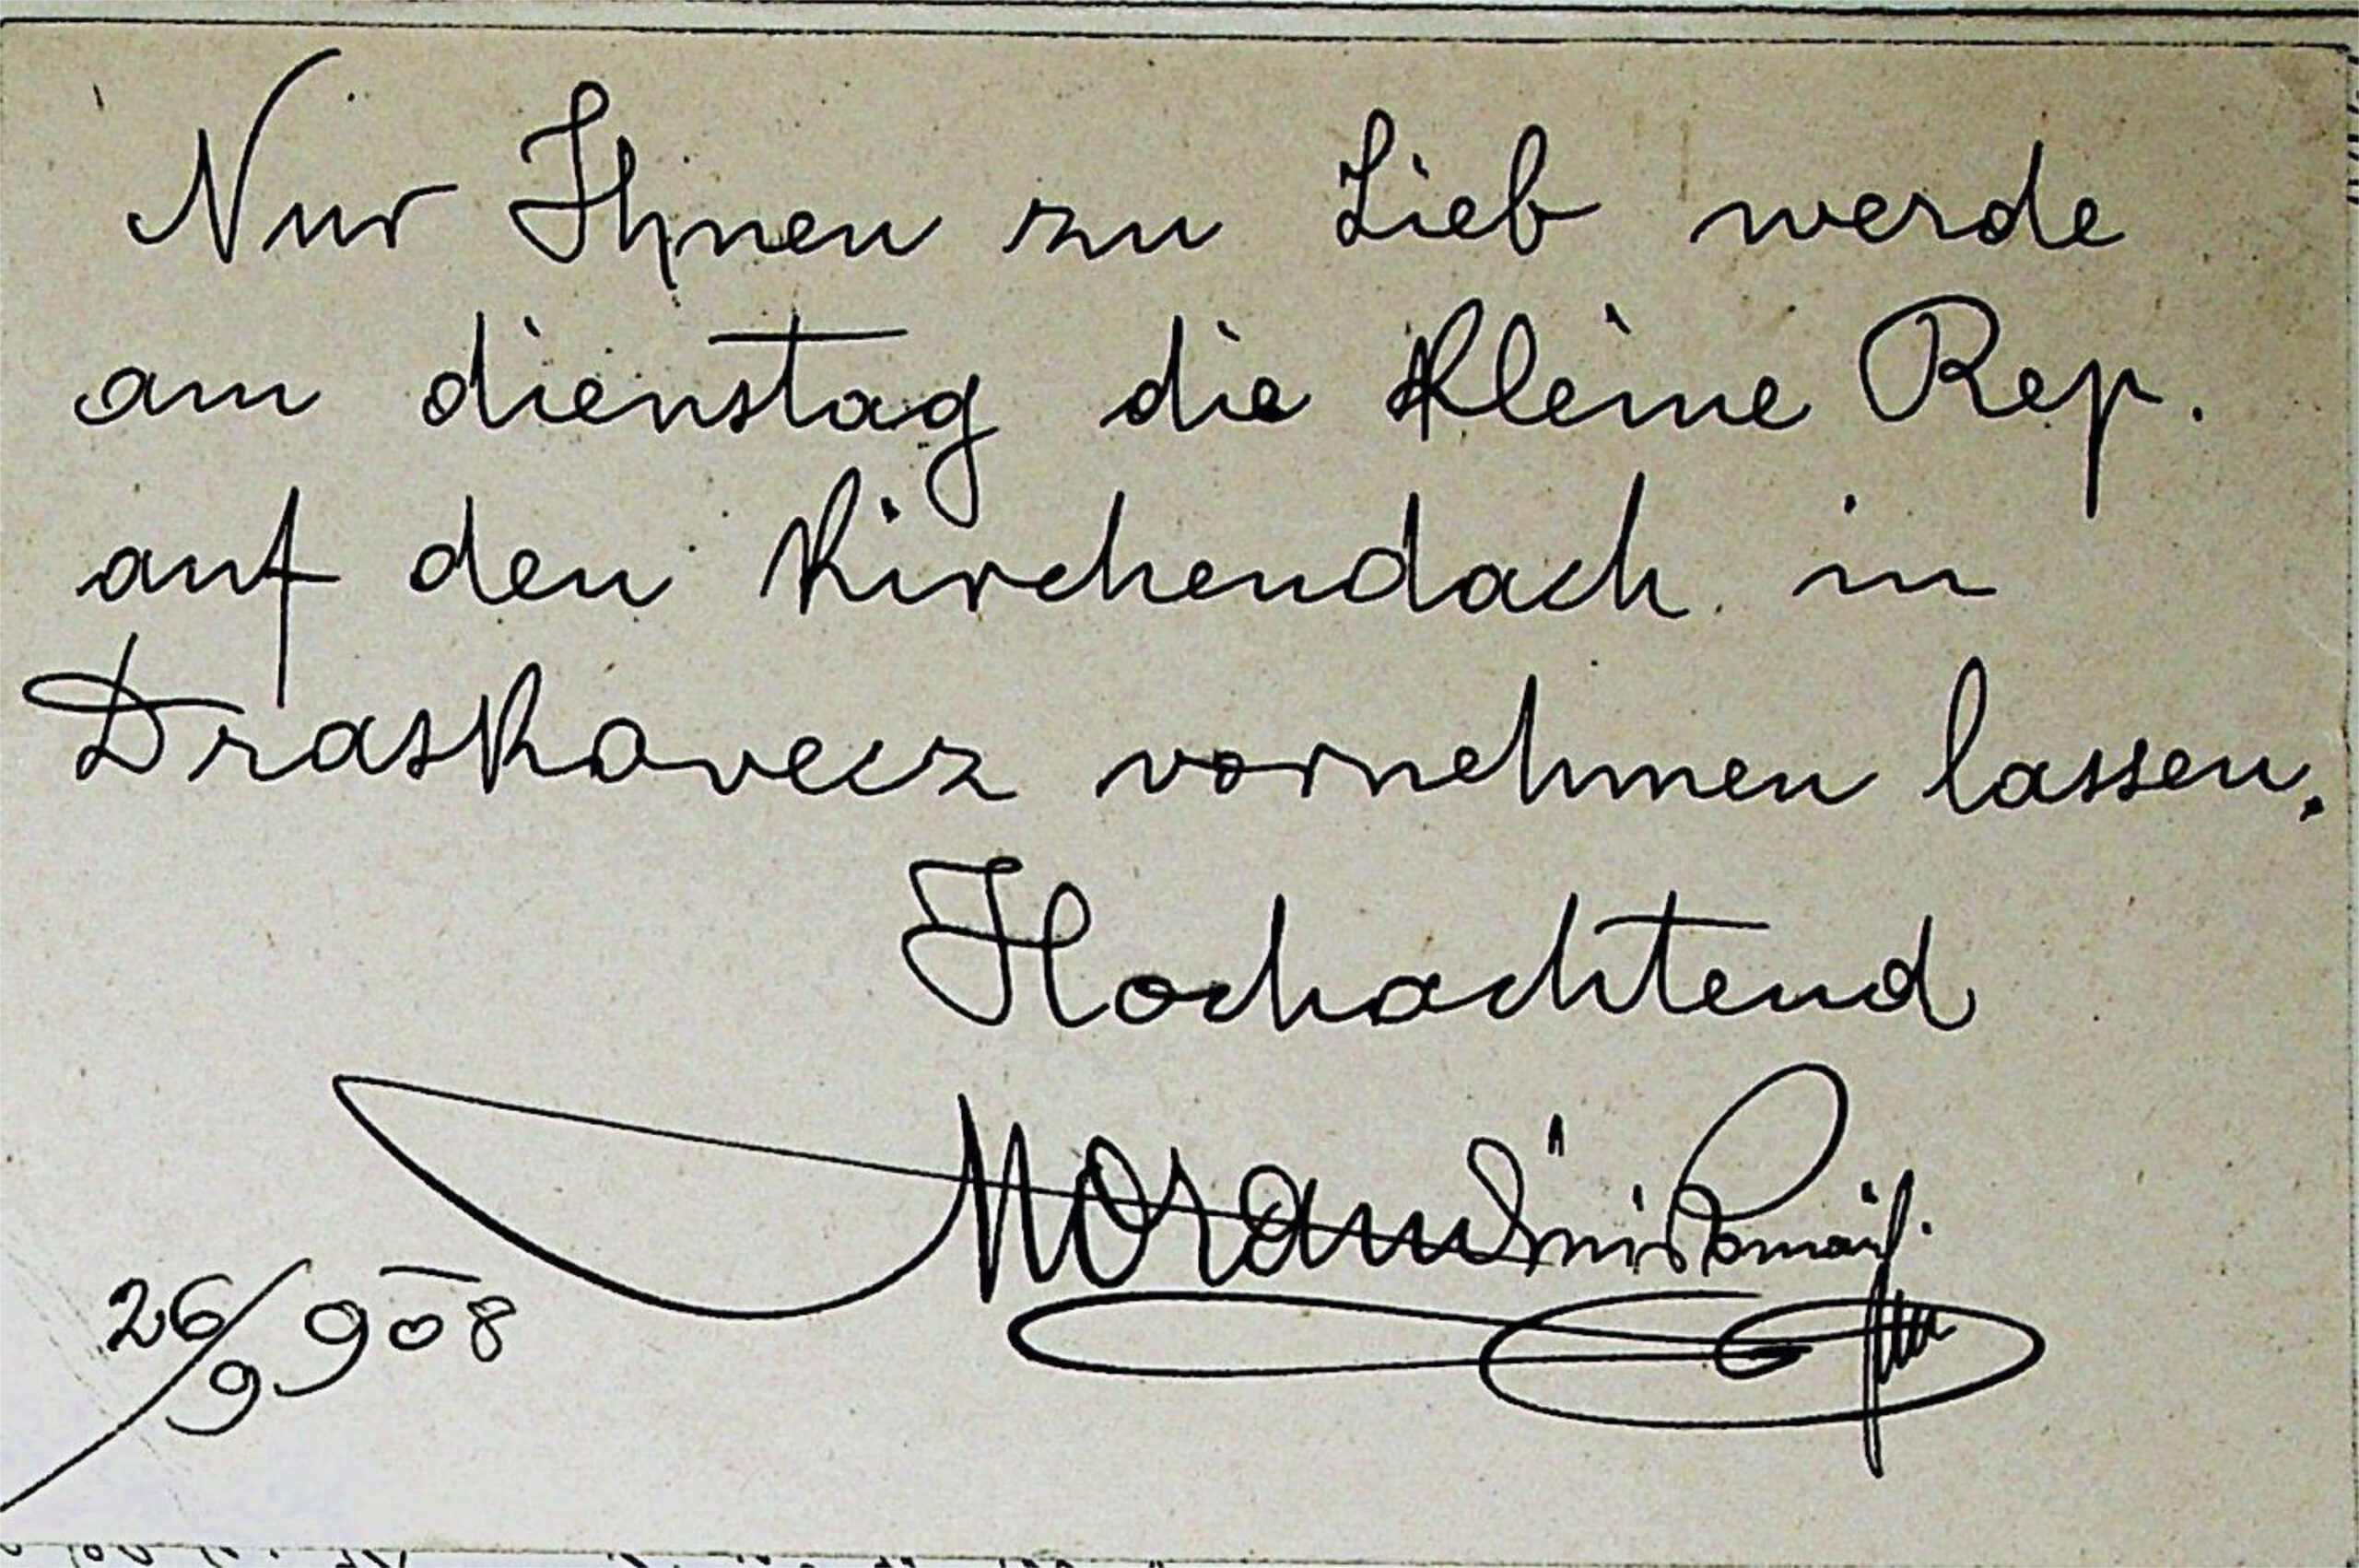 Nur Ihnen zu Lieb werde
am dienstag die kleine Rep.
auf den Kirchendach in
Draskovecz vornehmen lassen.
Hochachtend
26/9 908